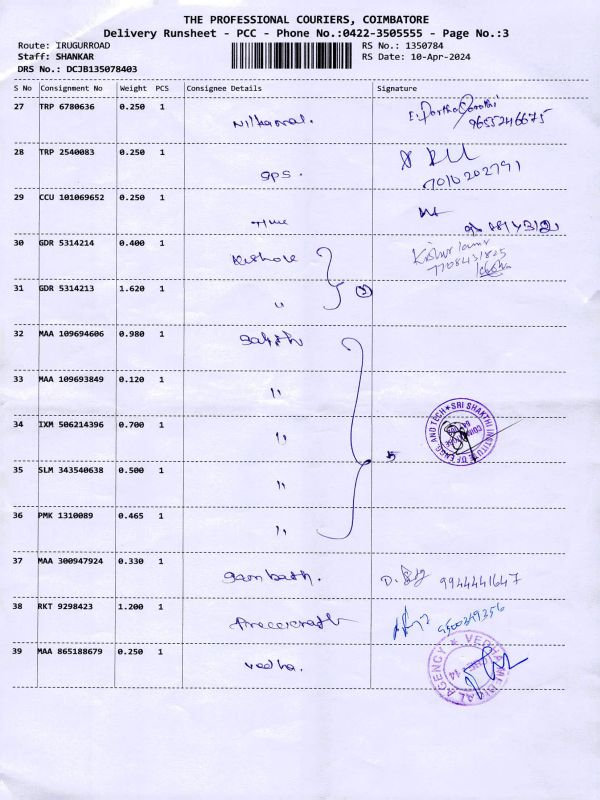 THE PROFESSIONAL COURIERS, COIMBATORE
Delivery Runsheet - PCC - Phone No.:0422-3505555 - Page No.:3
Route: IRUGURROAD RS No.: 1350784
Staff: SHANKAR RS Date: 10-Apr-2024
DRS No.: DCJB135078403
S No Consignment No Weight PCS Consignee Details Signature
27 TRP 6780636 0.250 1 9655246675
28 TRP 2540083 0.250 1 GPS. 7010202791
29 CCU 101069652 0.250 1
30 GDR 5314214 0.400 1 Kishore 7708431825
31 GDR 5314213 1.620 1 " 2
32 MAA 109694606 0.980 1 Sakthi
33 MAA 109693849 0.120 1 "
34 IXM 506214396 0.700 1 " SRI SHAKTHI INSTITUTE OF ENGG. AND TECH
35 SLM 343540638 0.500 1 " 5
36 PMK 1310089 0.465 1 "
37 MAA 300947924 0.330 1 Sambath. 9944441647
38 RKT 9298423 1.200 1 9500349356
39 MAA 865188679 0.250 1 Vedha. VEDHA AGENCY